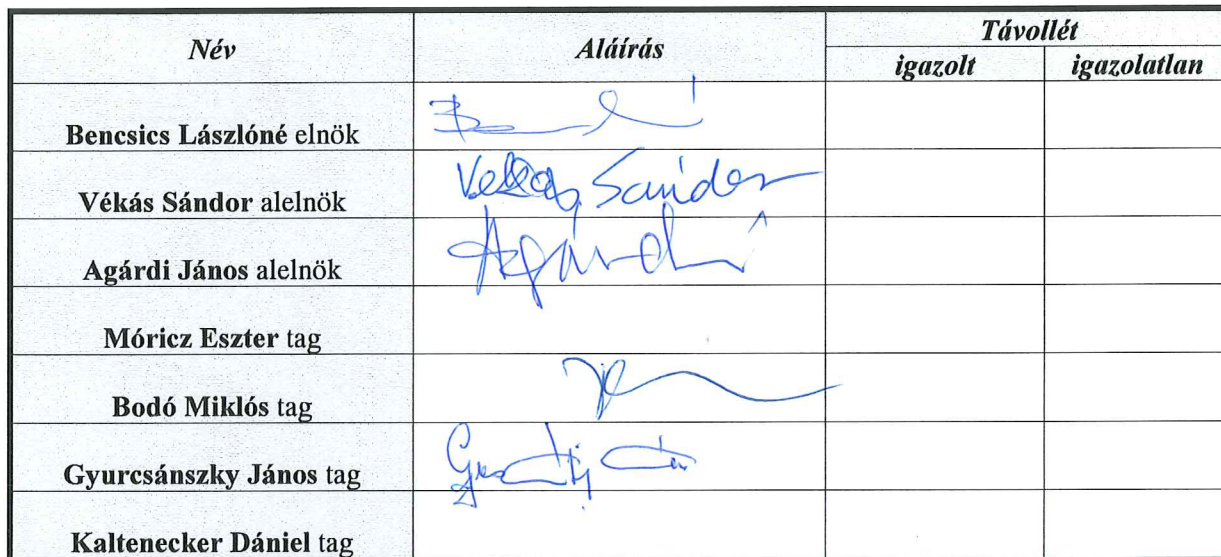 Név Aláírás Távollét
igazolt igazolatlan
Bencsics Lászlóné elnök
Vékás Sándor alelnök Vékás Sándor
Agárdi János alelnök Agárdi
Móricz Eszter tag
Bodó Miklós tag
Gyurcsánszky János tag
Kaltenecker Dániel tag